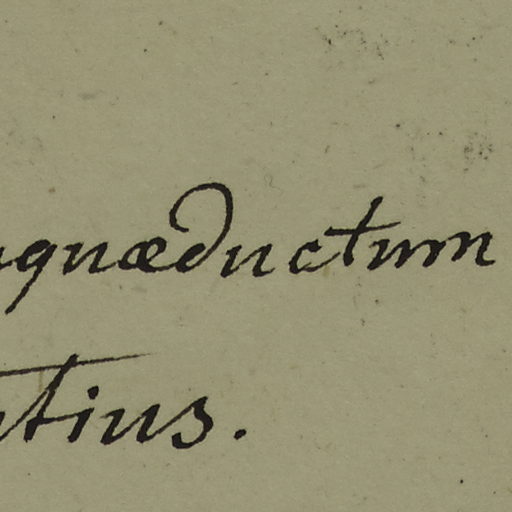 aquæductum
ntius.